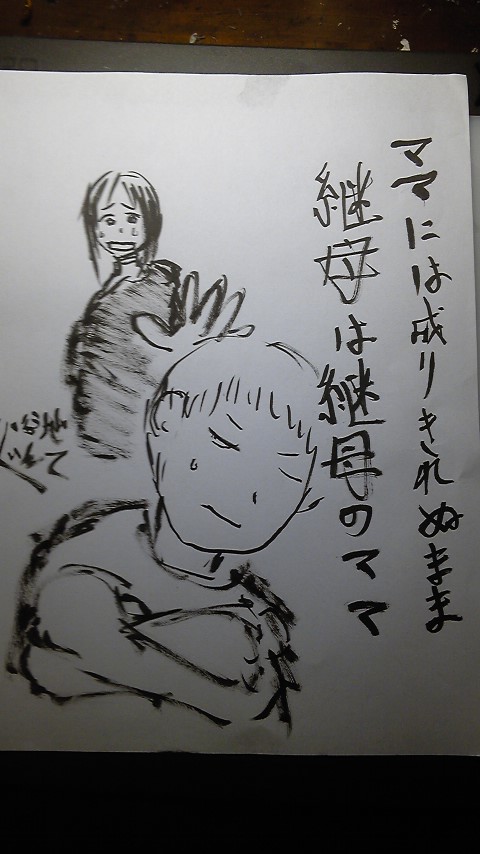 ママには成りきれぬまま
継母は継母のママ